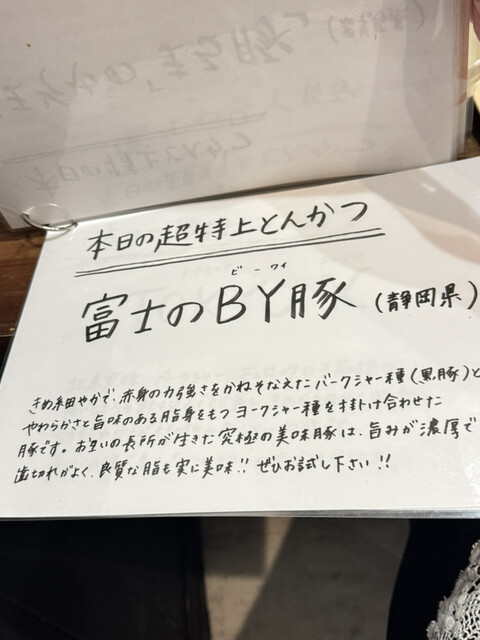 本日の超特上とんかつ
ビーワイ
富士のBY豚(静岡県)
きめ細やかで、赤身の力強さをかねそなえたバークシャー種(黒豚)と
やわらかさと旨味のある脂身をもつヨークシャー種を掛け合わせた
豚です。お互いの長所が生きた究極の美味豚は、旨みが濃厚で
歯切れがよく、良質な脂も実に美味!!ぜひお試し下さい!!